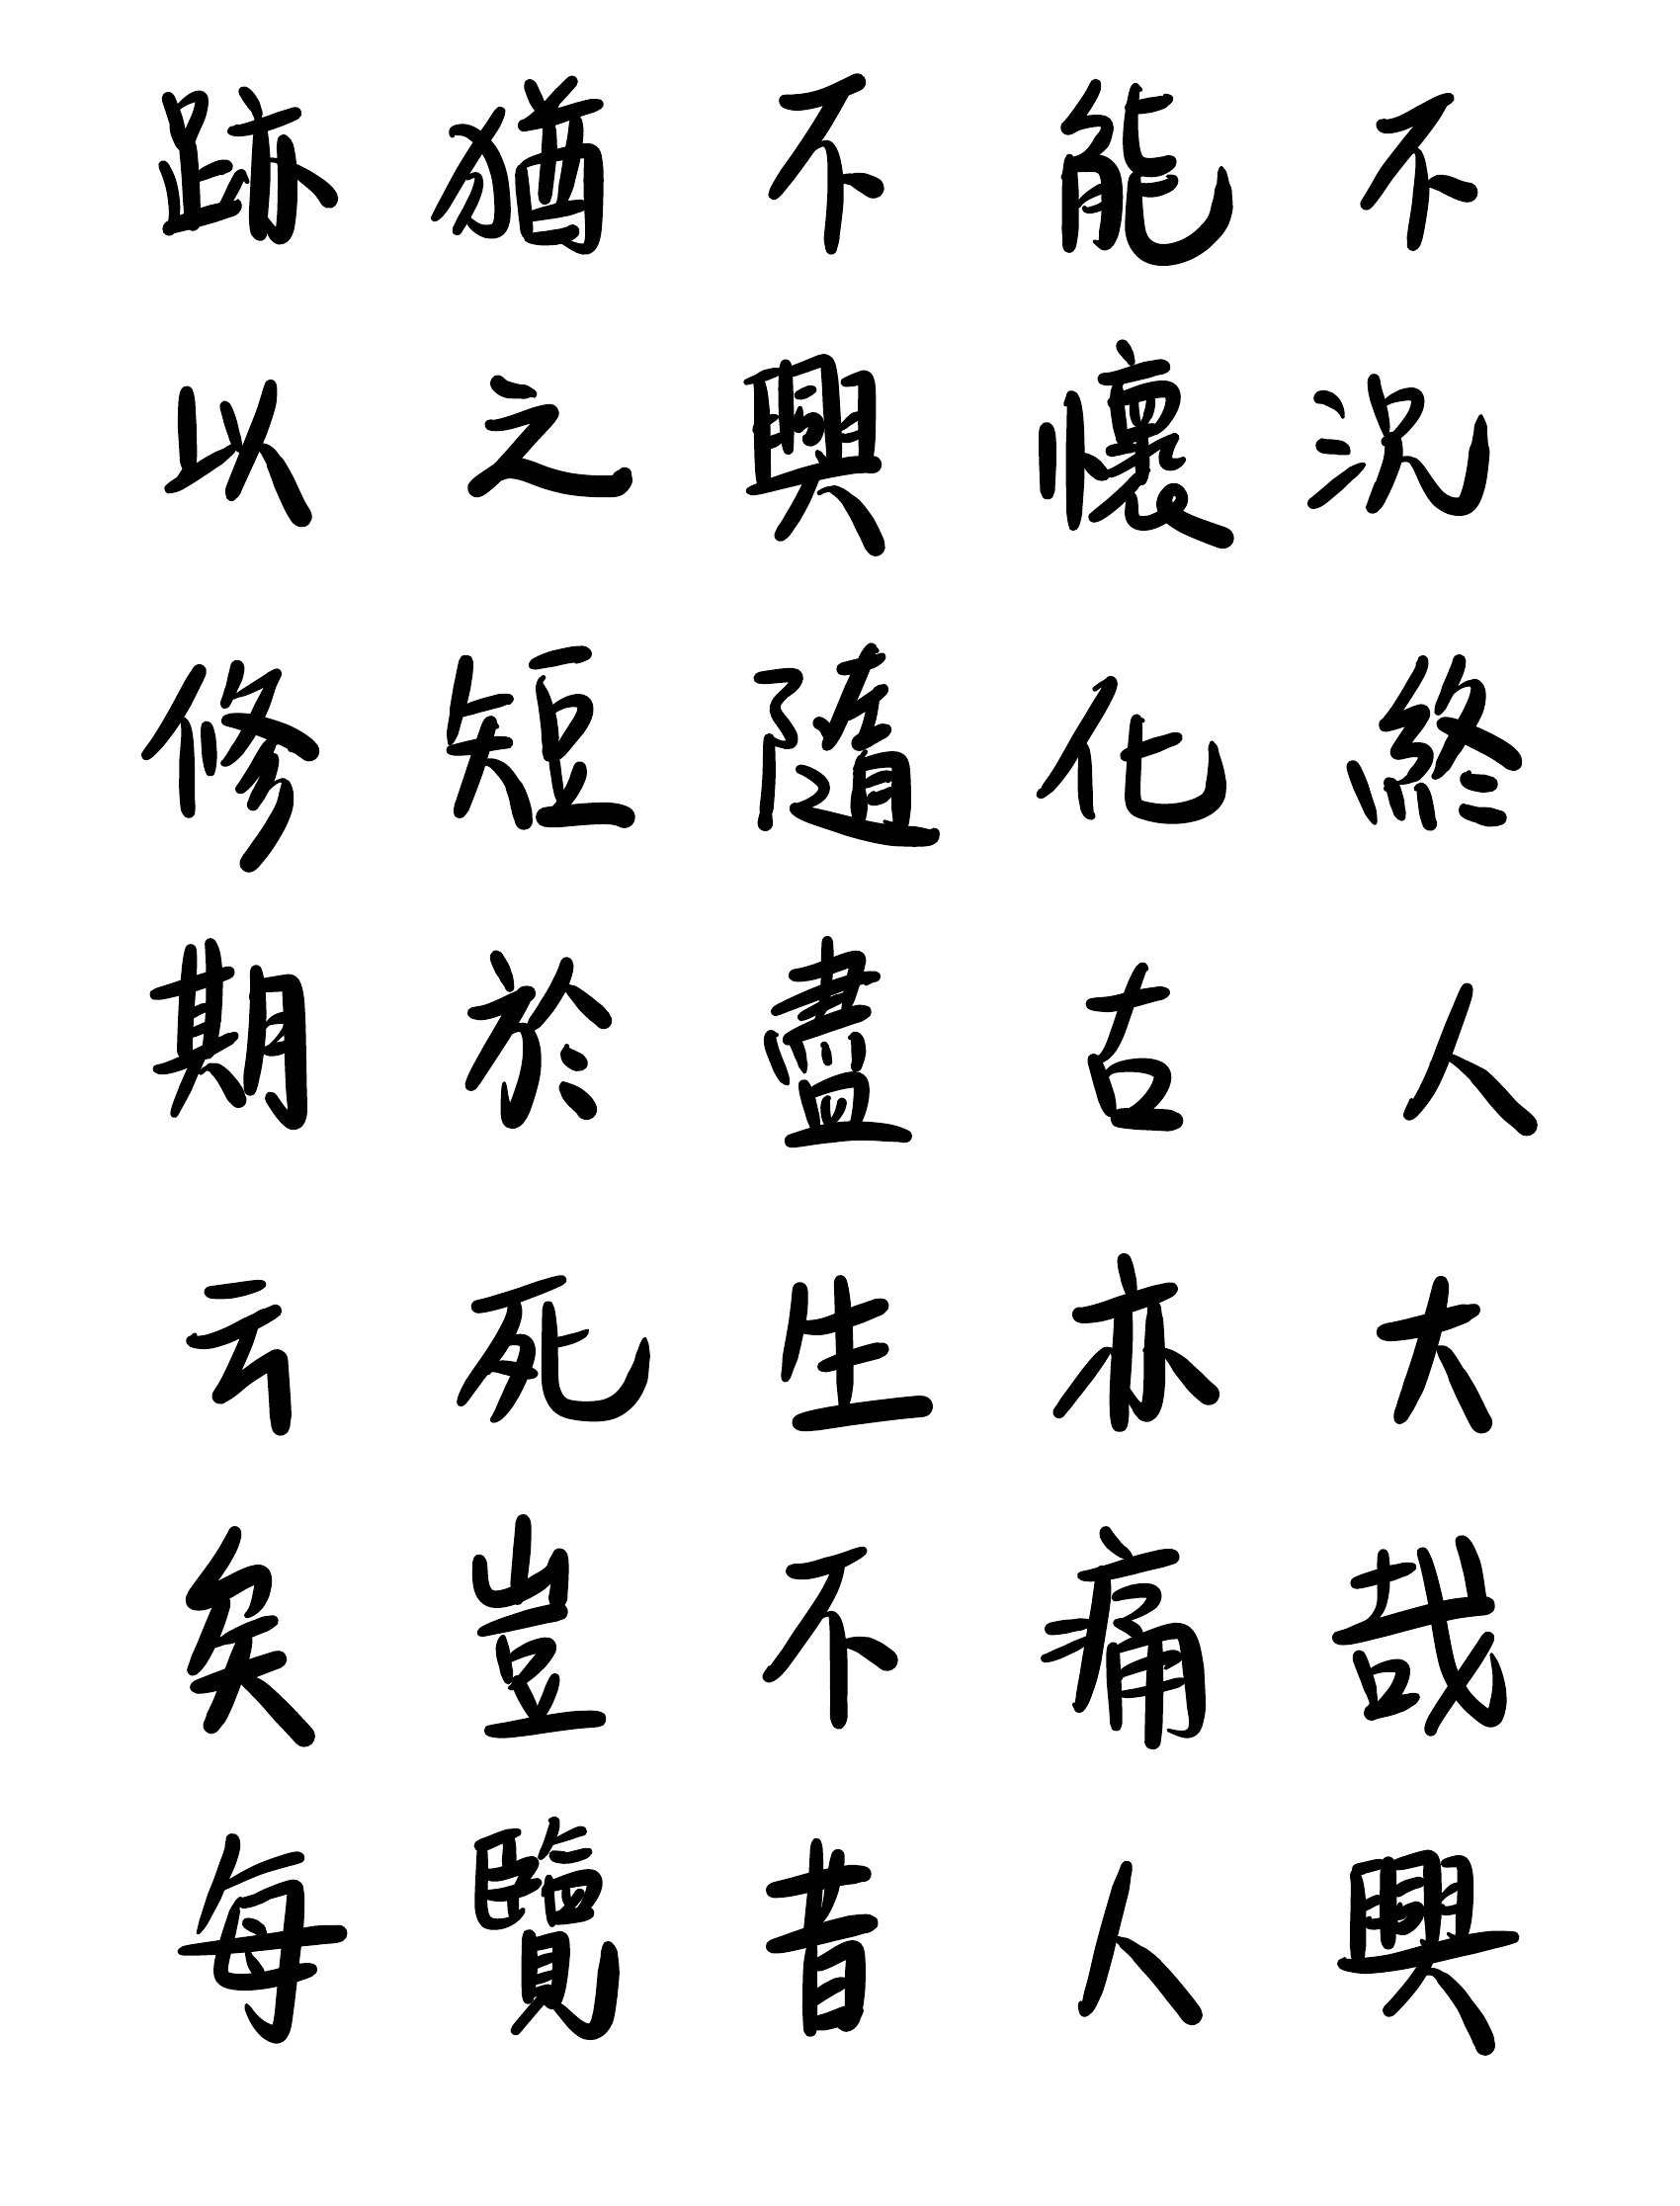 跡猶不能不
以之興懷況
修短隨化終
期於盡古人
云死生亦大
矣豈不痛哉
每覽昔人興